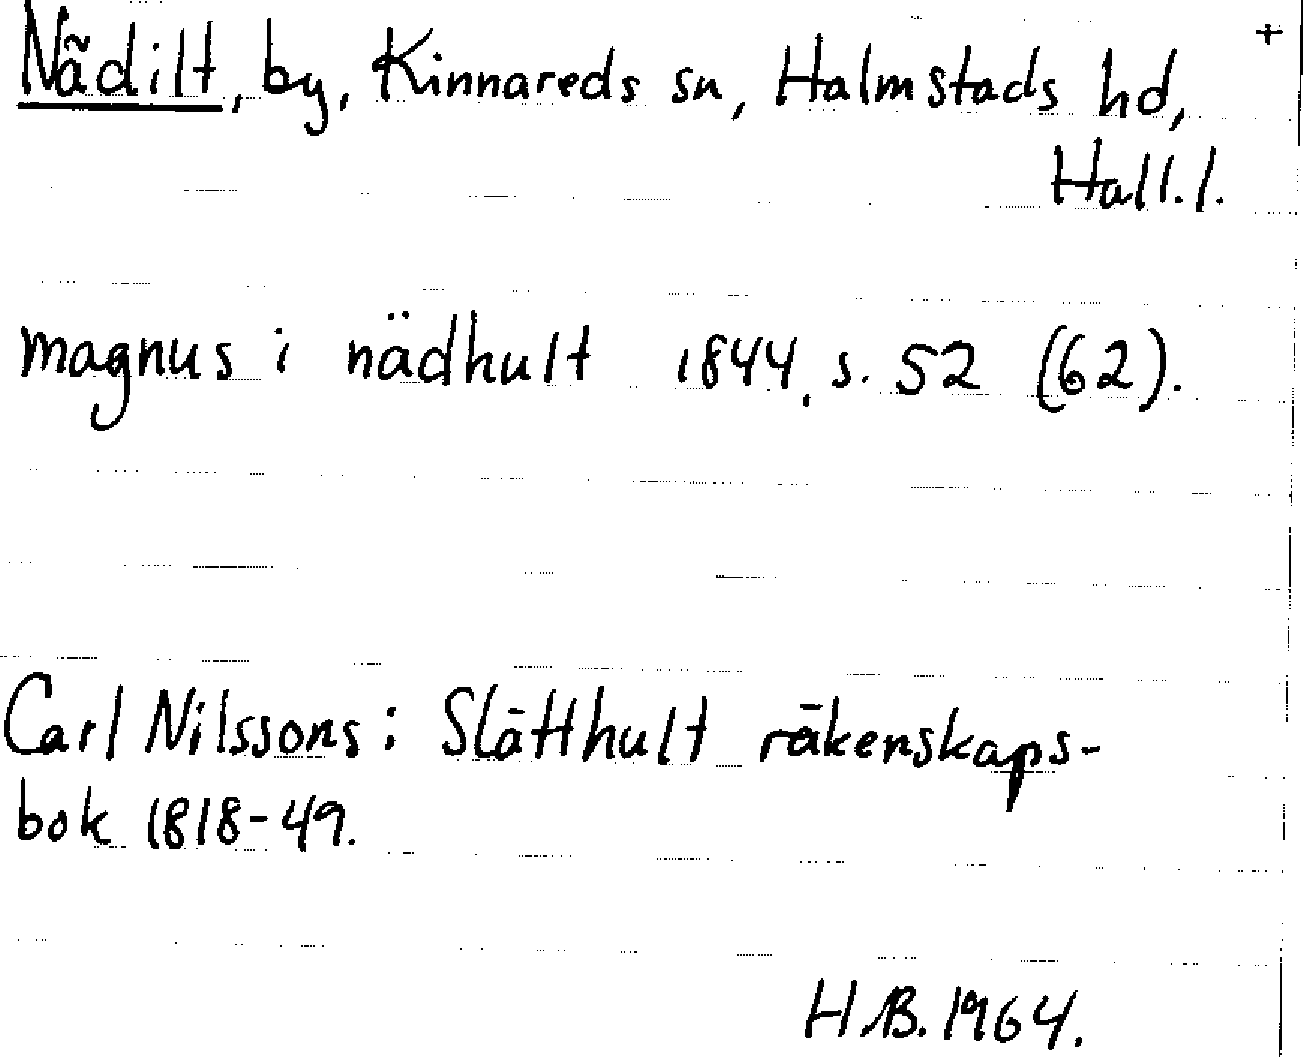 +
Nädilt, by, Kinnareds sn, Halmstads hd,
Hall. l.
magnus i nädhult 1844, s. 52 (62).
Carl Nilssons i Slätthult räkenskaps-
bok 1818-49.
H.B. 1964.